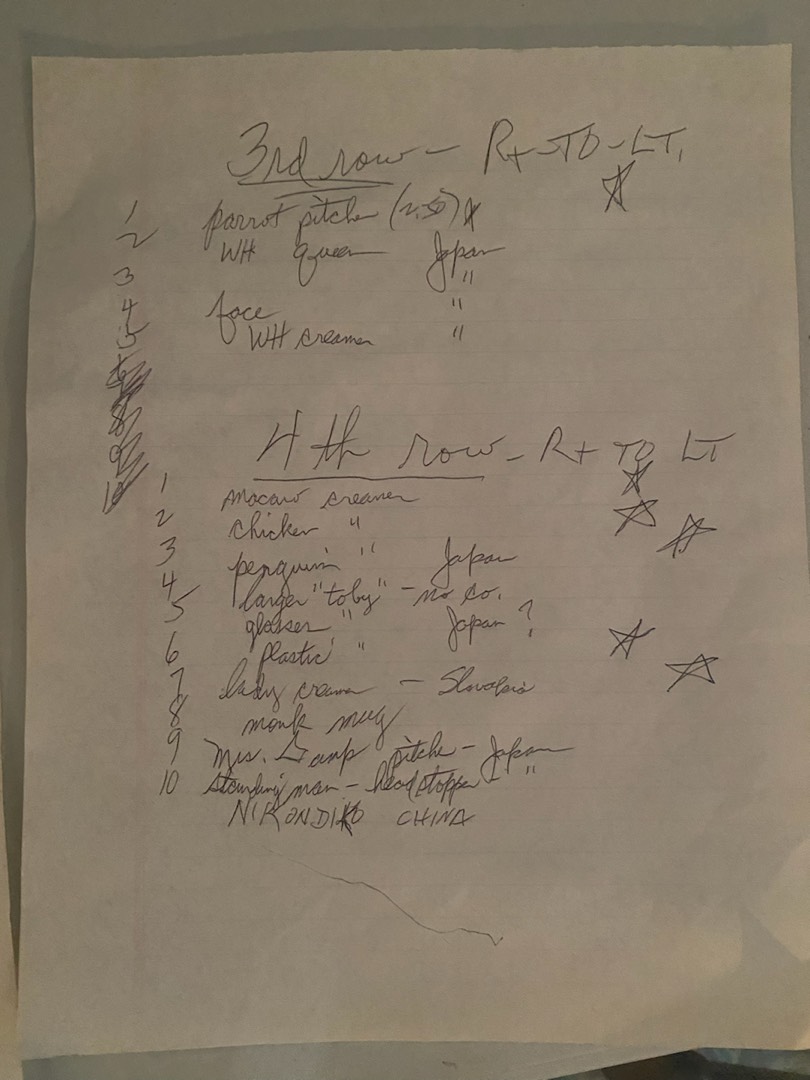 3rd row - Rt-TO-LT.
1 parrot pitcher (2.50)
2 WH queen Japan
3 "
4 face "
5 WH creamer "
4th row - Rt TO LT
1 macaw creamer
2 chicken "
3 penguin " Japan
4 larger "toby" - no co.
5 glasses " Japan ?
6 plastic "
7 lady creamer -
8 monk mug
9 Mrs. Gamp pitcher - Japan
10 standing man - head stopper - "
CHINA